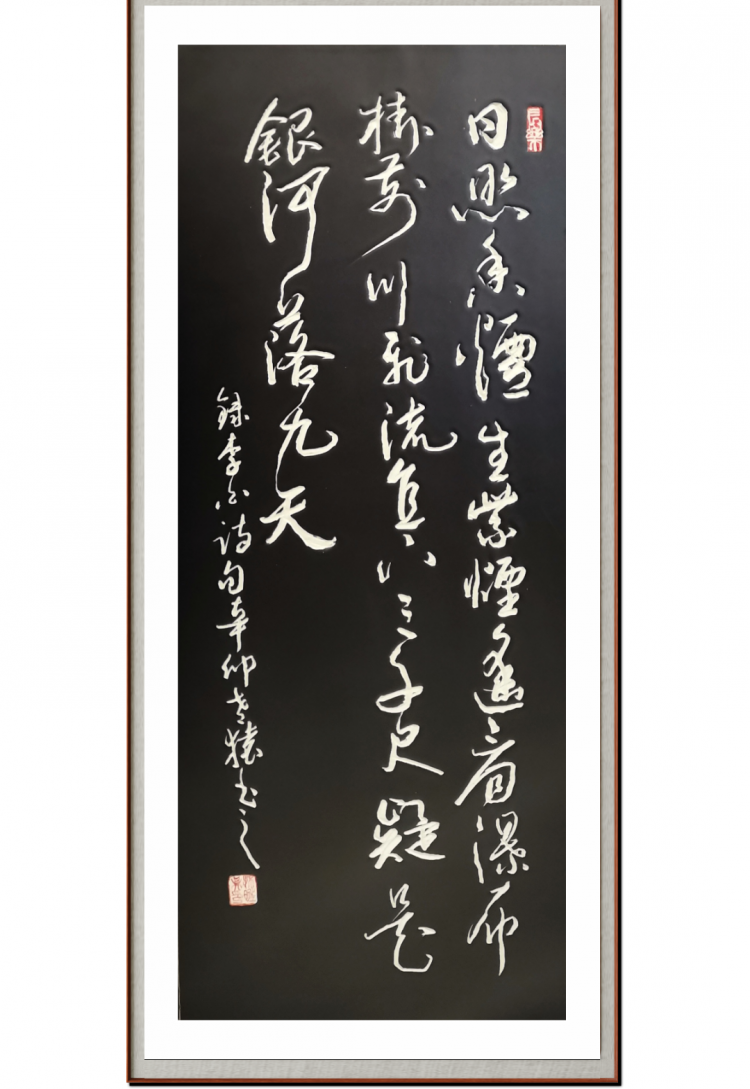 日照香爐生紫煙遙看瀑布
掛前川飛流直下三千尺疑是
銀河落九天
錄李白詩句辛卯书之